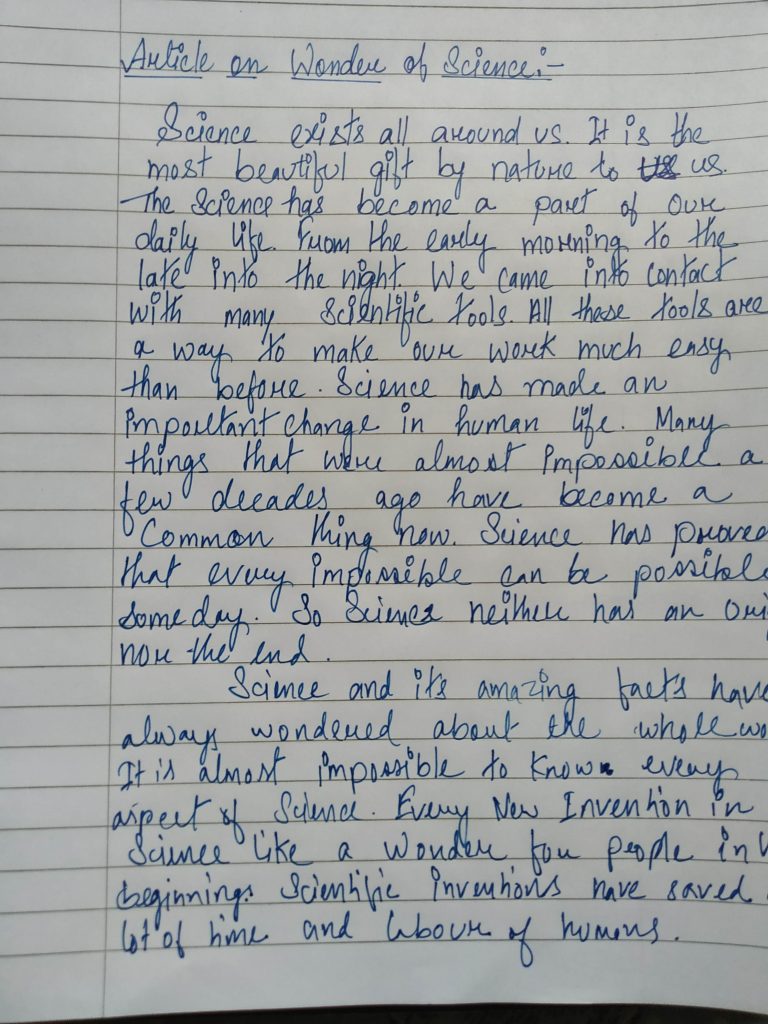 Article on Wonder of Science:-
Science exists all around us. It is the
most beautiful gift by nature to us.
The Science has become a part of our
daily life. From the early morning to the
late into the night. We came into contact
with many Scientific tools. All these tools are
a way to make our work much easy
than before. Science has made an
important change in human life. Many
things that were almost impossible a
few decades ago have become a
Common thing now. Science has proved
that every impossible can be possible
someday. So Science neither has an
nor the end.
Science and its amazing facts have
always wondered about the whole
It is almost impossible to know every
aspect of Science. Every New Invention in
Science like a wonder for people in
beginning. Scientific inventions have saved
lot of time and labour of humans.